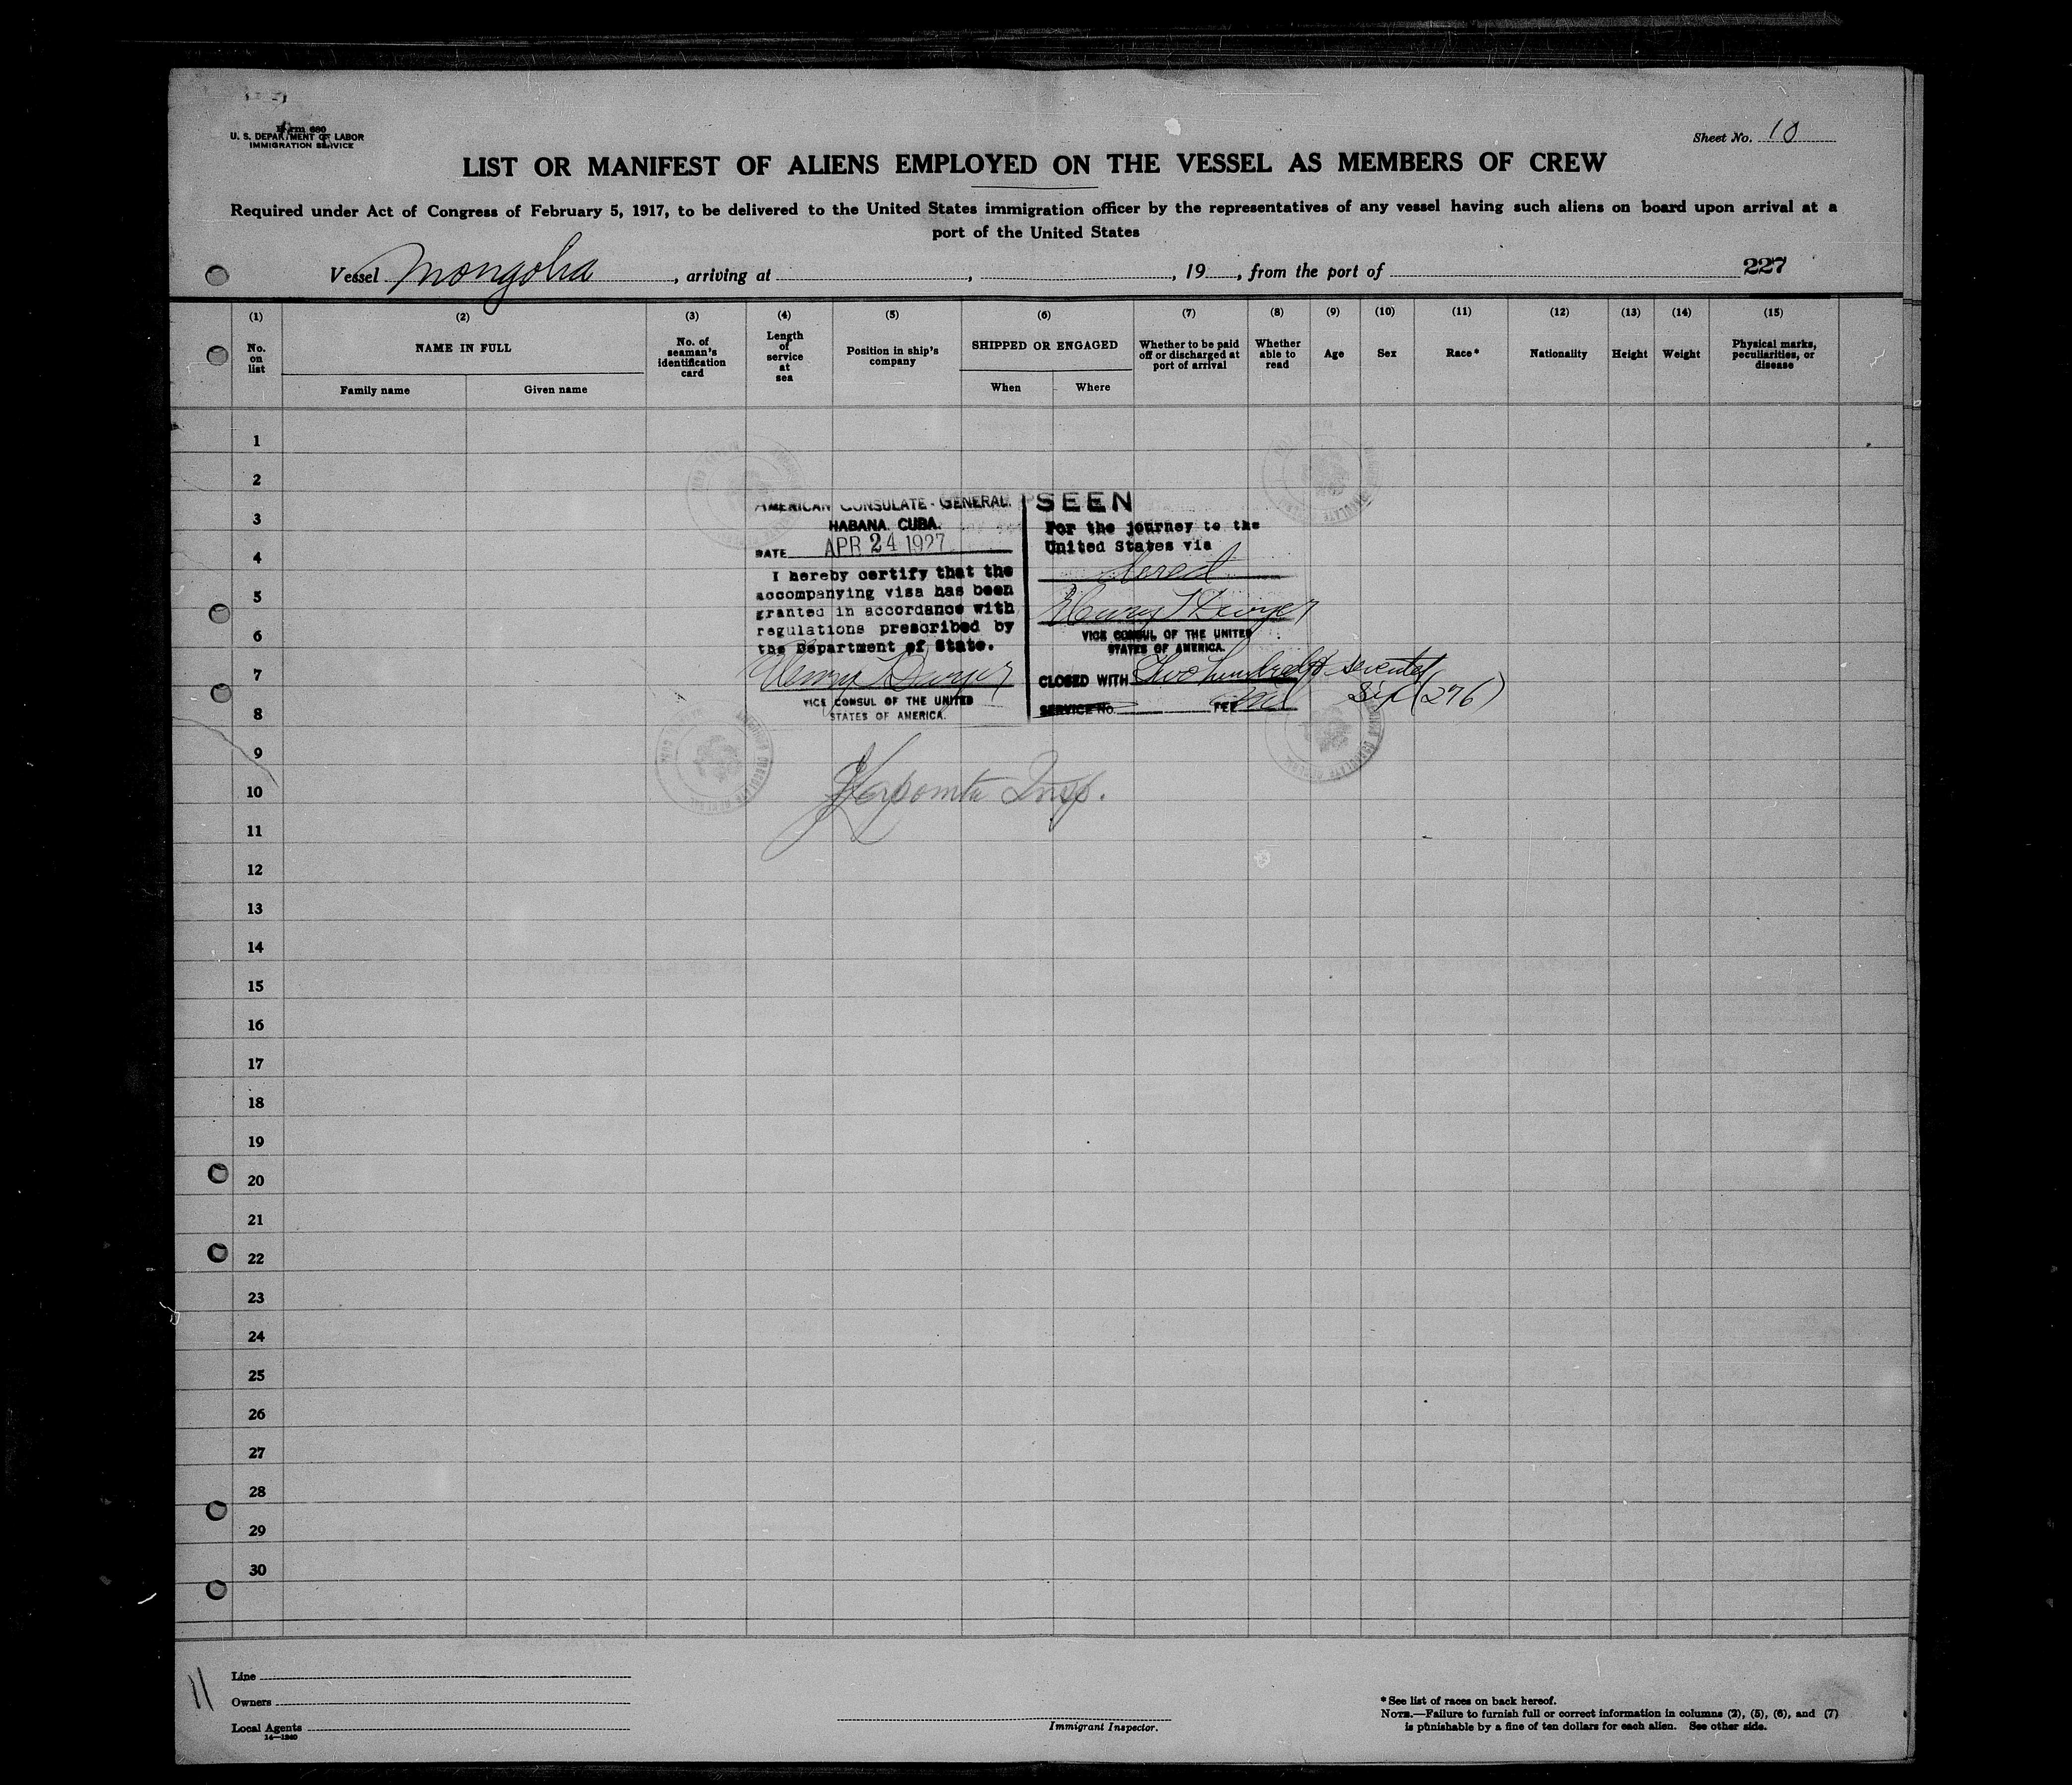 Form 680
U. S. DEPARTMENT OF LABOR
IMMIGRATION SERVICE
Sheet No. 10
LIST OR MANIFEST OF ALIENS EMPLOYED ON THE VESSEL AS MEMBERS OF CREW
Required under Act of Congress of February 5, 1917, to be delivered to the United States immigration officer by the representatives of any vessel having such aliens on board upon arrival at a
port of the United States
Vessel Mongolia, arriving at , , 19 , from the port of 227
(1) (2) (3) (4) (5) (6) (7) (8) (9) (10) (11) (12) (13) (14) (15)
No. on list
NAME IN FULL
Family name
Given name
No. of seaman's identification card
Length of service at sea
Position in ship's company
SHIPPED OR ENGAGED
When
Where
Whether to be paid off or discharged at port of arrival
Whether able to read
Age
Sex
Race*
Nationality
Height
Weight
Physical marks, peculiarities, or disease
1
2
3
4
5
6
7
8
9
10
11
12
13
14
15
16
17
18
19
20
21
22
23
24
25
26
27
28
29
30
AMERICAN CONSULATE-GENERAL
HABANA. CUBA.
DATE APR 24 1927
I hereby certify that the
accompanying visa has been
granted in accordance with
regulations prescribed by
the Department of State.
Henry Dwyer
VICE CONSUL OF THE UNITED
STATES OF AMERICA.
SEEN
For the journey to the
United States via
direct
Henry T Dwyer
VICE CONSUL OF THE UNITED
STATES OF AMERICA.
CLOSED WITH Two hundred & seventy
six (276)
SERVICE No. FEE
Insp.
11
Line
Owners
Local Agents
14—1240
Immigrant Inspector.
* See list of races on back hereof.
NOTE.—Failure to furnish full or correct information in columns (2), (5), (6), and (7)
is punishable by a fine of ten dollars for each alien. See other side.